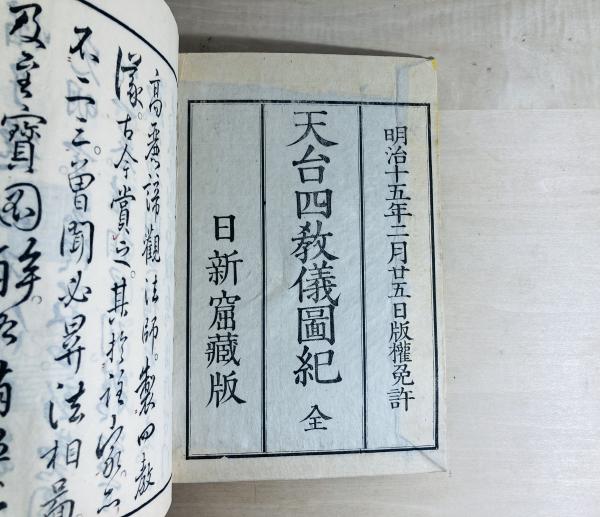 明治十五年二月廿五日版權免許
天台四教儀圖紀 全
日新窟藏版
高麗諦觀法師。製四教
儀。古今賞之。其於註家。亦
不一三。曽聞必昇法相
及至寶